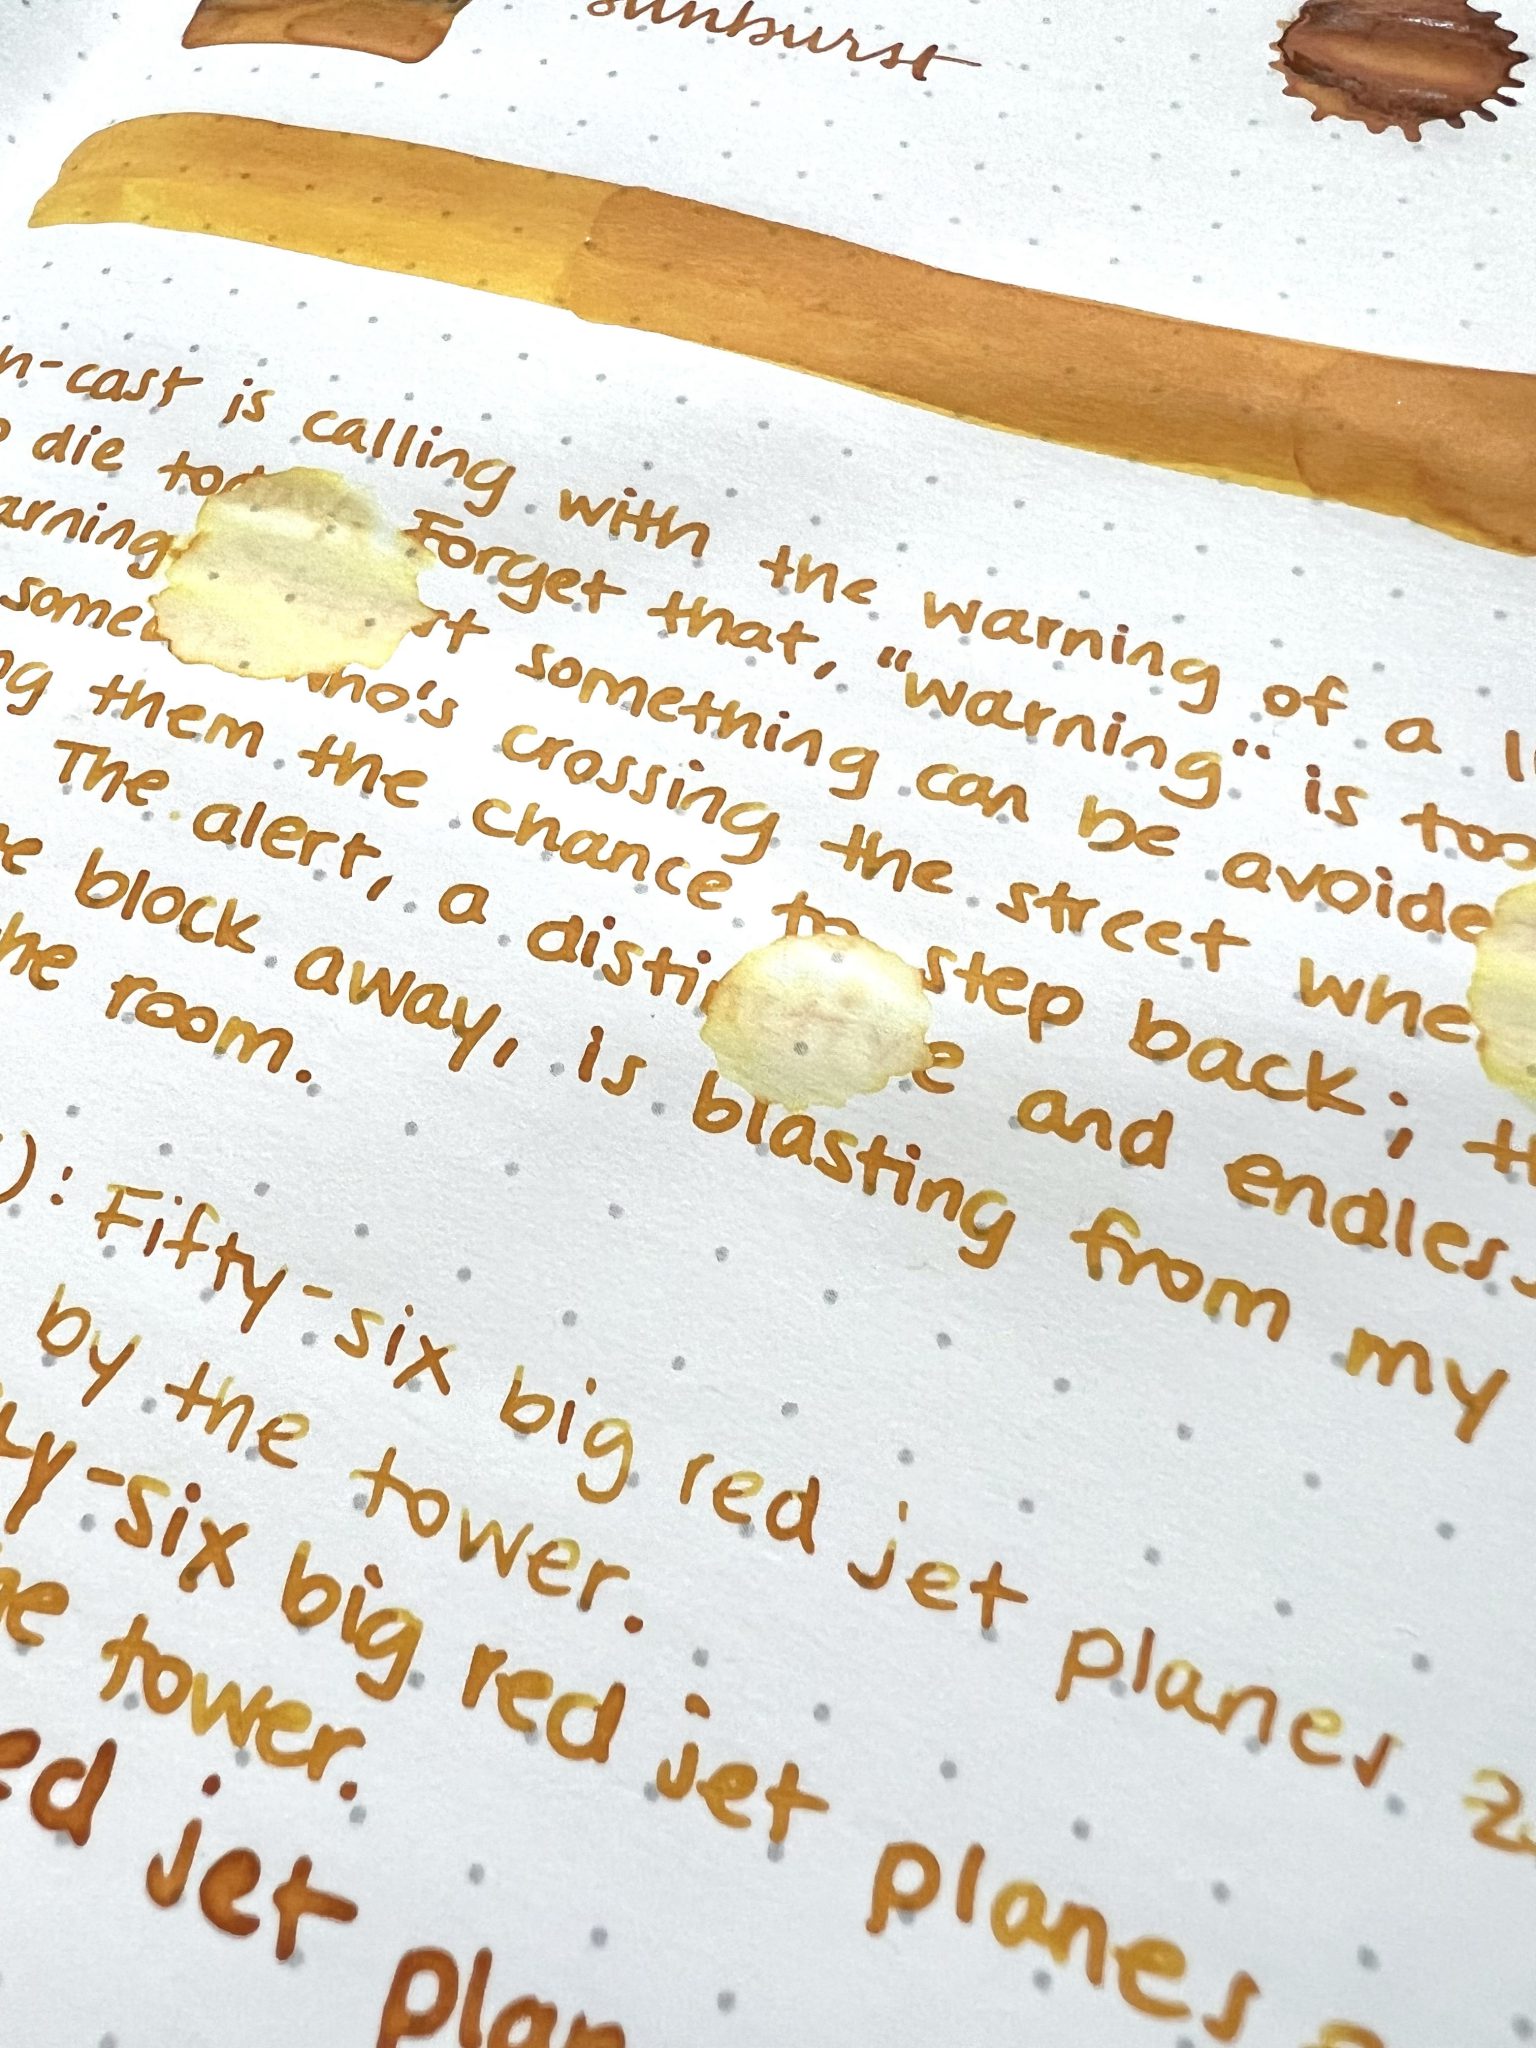 sunburst
n-cast is calling with the warning of a
die Forget that, "warning" is too
arning something can be avoide
some who's crossing the street whe
ng them the chance to step back; th
The alert, a disti e and endless
block away, is blasting from my
he room.
): Fifty-six big red jet planes z
by the tower.
ty-six big red jet planes
e tower.
ed jet plan